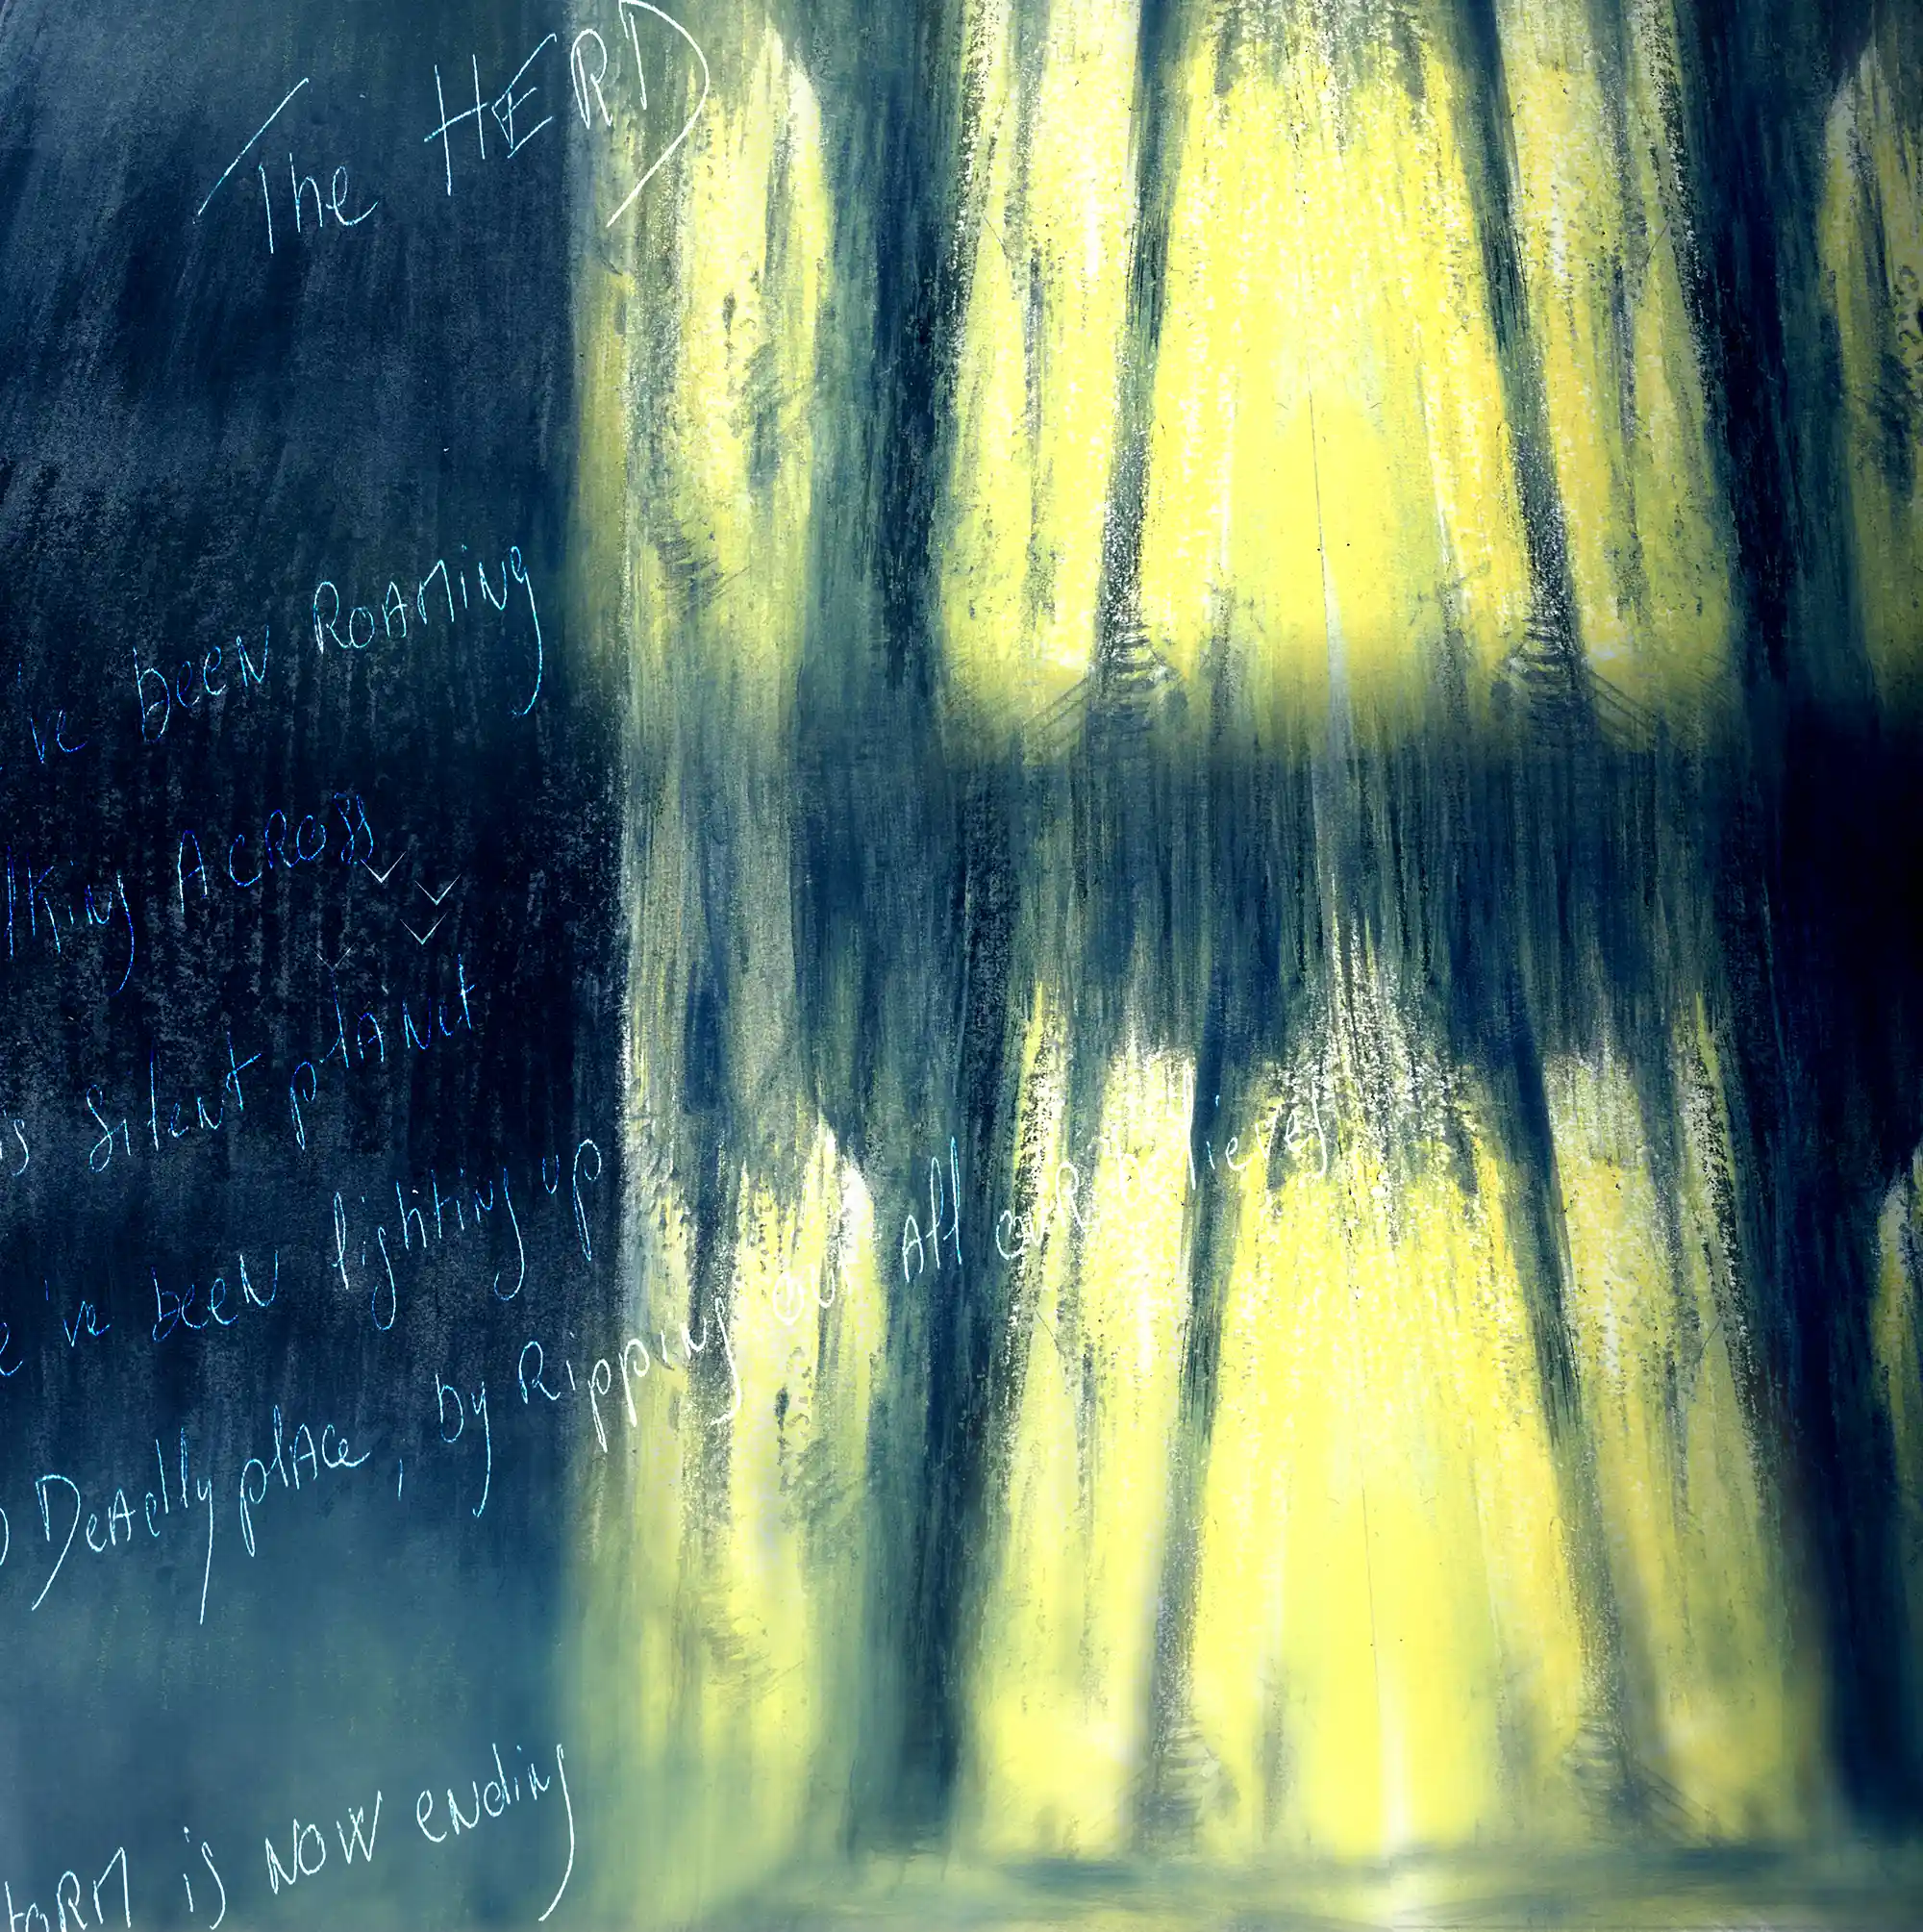 The HERD
've been Roaming
lking Across
is silent planet
e 've been lighting up
Deadly place, by Ripping out All our believes
torm is now ending